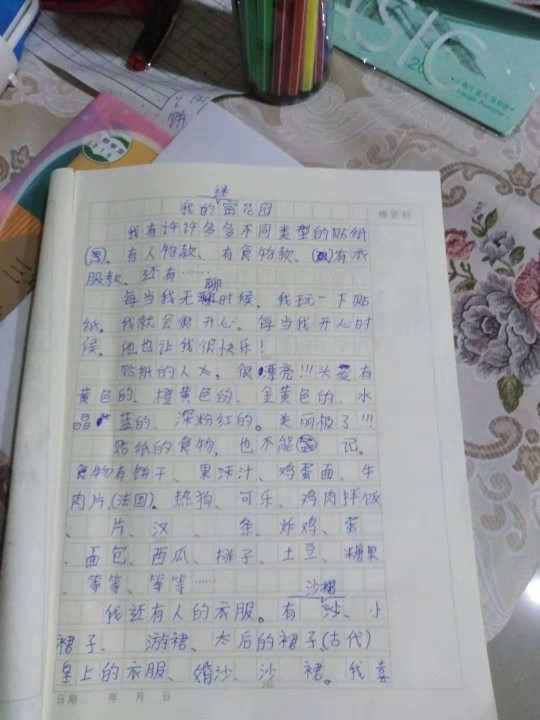 ASIC
谜
我的密花园
我有许许多多不同类型的贴纸
有人物款、有食物款、有衣
服款、还有……
聊
每当我无聊时候，我玩一下贴
纸。我就会开心。每当我开心时
候。他也让我很快乐！
贴纸的人人，很漂亮!!!头发有
黄色的、橙黄色的、金黄色的、水
晶蓝的、深粉红的。美丽极了!!!
贴纸的食物，也不能 记。
食物有饼干、果沐汁、鸡蛋面、牛
肉片(法国)、热狗、可乐、鸡肉拌饭
、 片、汉 、 条、炸鸡、蛋
、面包、西瓜、桃子、土豆、糖果
、等等、等等……
沙裙
我还有人的衣服。有 沙、小
裙子、 游裙、太后的裙子(古代)
皇上的衣服、婚沙、沙 裙。我喜
日期： 年 月 日